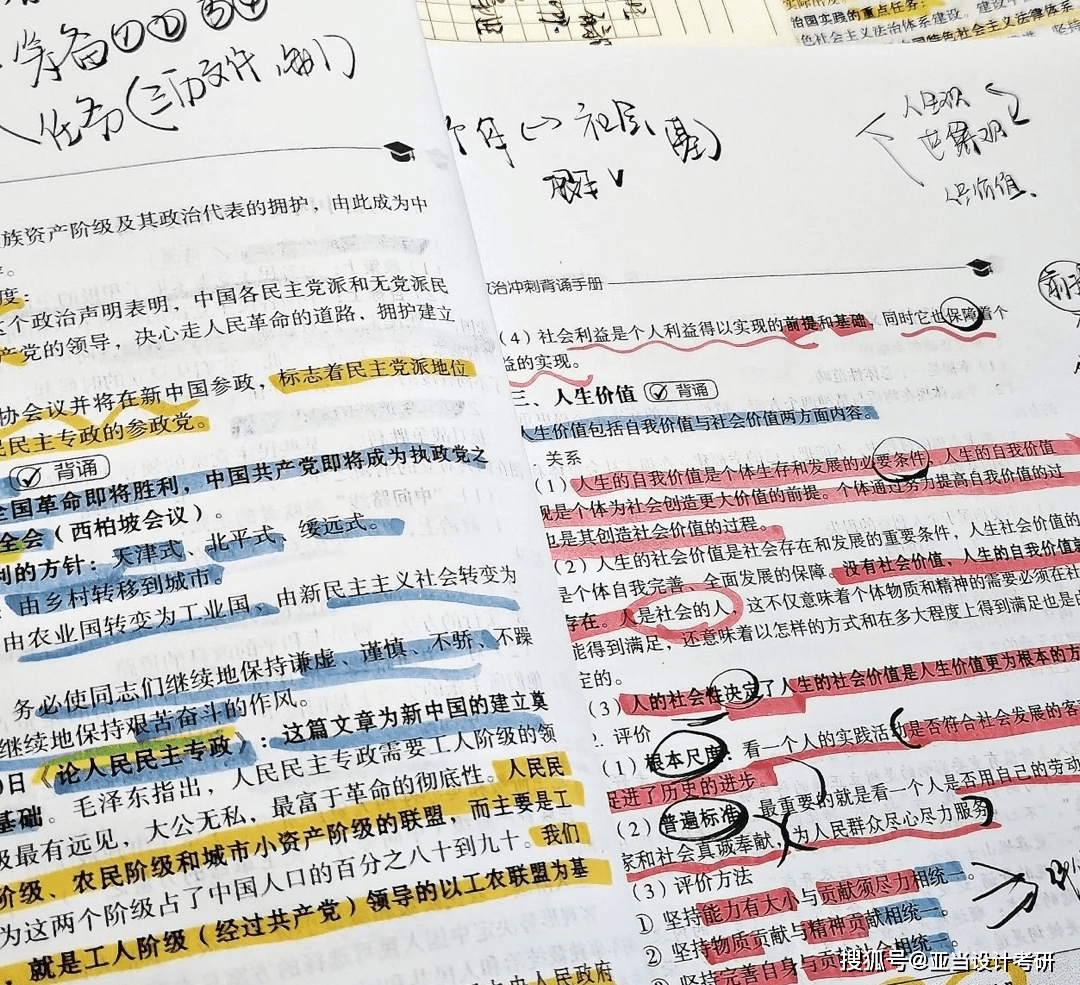 筹备
任务(三历文件,
族资产阶级及其政治代表的拥护,由此成为中
度:
个政治声明表明,中国各民主党派和无党派民
产党的领导,决心走人民革命的道路,拥护建立
协会议并将在新中国参政,标志着民主党派地位
民民主专政的参政党。
背诵
全国革命即将胜利,中国共产党即将成为执政党之
全会(西柏坡会议)。
利的方针:天津式、北平式、绥远式。
由乡村转移到城市。
由农业国转变为工业国、由新民主主义社会转变为
务必使同志们继续地保持谦虚、谨慎、不骄、不躁
继续地保持艰苦奋斗的作风。
日《论人民民主专政》:这篇文章为新中国的建立奠
基础。毛泽东指出,人民民主专政需要工人阶级的领
级最有远见,大公无私,最富于革命的彻底性。人民民
阶级、农民阶级和城市小资产阶级的联盟,而主要是工
为这两个阶级占了中国人口的百分之八十到九十。我们
就是工人阶级(经过共产党)领导的以工农联盟为基
中央人民政府
治国实践的重点任务:
色社会主义法治体系建设。建设中
国特色社会主义法律体系
社会
人生观
世界观
价值
政治冲刺背诵手册
(4)社会利益是个人利益得以实现的前提和基础,同时它也保障着个
益的实现。
三、人生价值 背诵
人生价值包括自我价值与社会价值两方面内容。
关系
(1)人生的自我价值是个体生存和发展的必要条件,人生的自我价值
现是个体为社会创造更大价值的前提。个体通过努力提高自我价值的过
也是其创造社会价值的过程。
(2)人生的社会价值是社会存在和发展的重要条件,人生社会价值的
是个体自我完善、全面发展的保障。没有社会价值,人生的自我价值就
存在。人是社会的人,这不仅意味着个体物质和精神的需要必须在社
能得到满足,还意味着以怎样的方式和在多大程度上得到满足也是由
定的。
(3)人的社会性决定了人生的社会价值是人生价值更为根本的方
2. 评价
(1)根本尺度:看一个人的实践活动是否符合社会发展的客
促进了历史的进步
(2)普遍标准:最重要的就是看一个人是否用自己的劳动
家和社会真诚奉献,为人民群众尽心尽力服务
(3)评价方法
① 坚持能力有大小与贡献须尽力相统一。
② 坚持物质贡献与精神贡献相统一。
坚持完善自身与贡献社会相统一。
搜狐号@亚当设计考研